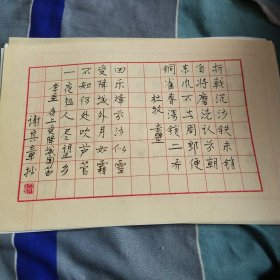 折戟沉沙铁未销
自将磨洗认前朝
东风不与周郎便
铜雀春深锁二乔
杜牧 赤壁
回乐烽前沙似雪
受降城外月如霜
不知何处吹芦管
一夜征人尽望乡
李益 夜上受降城闻笛
谢其章抄